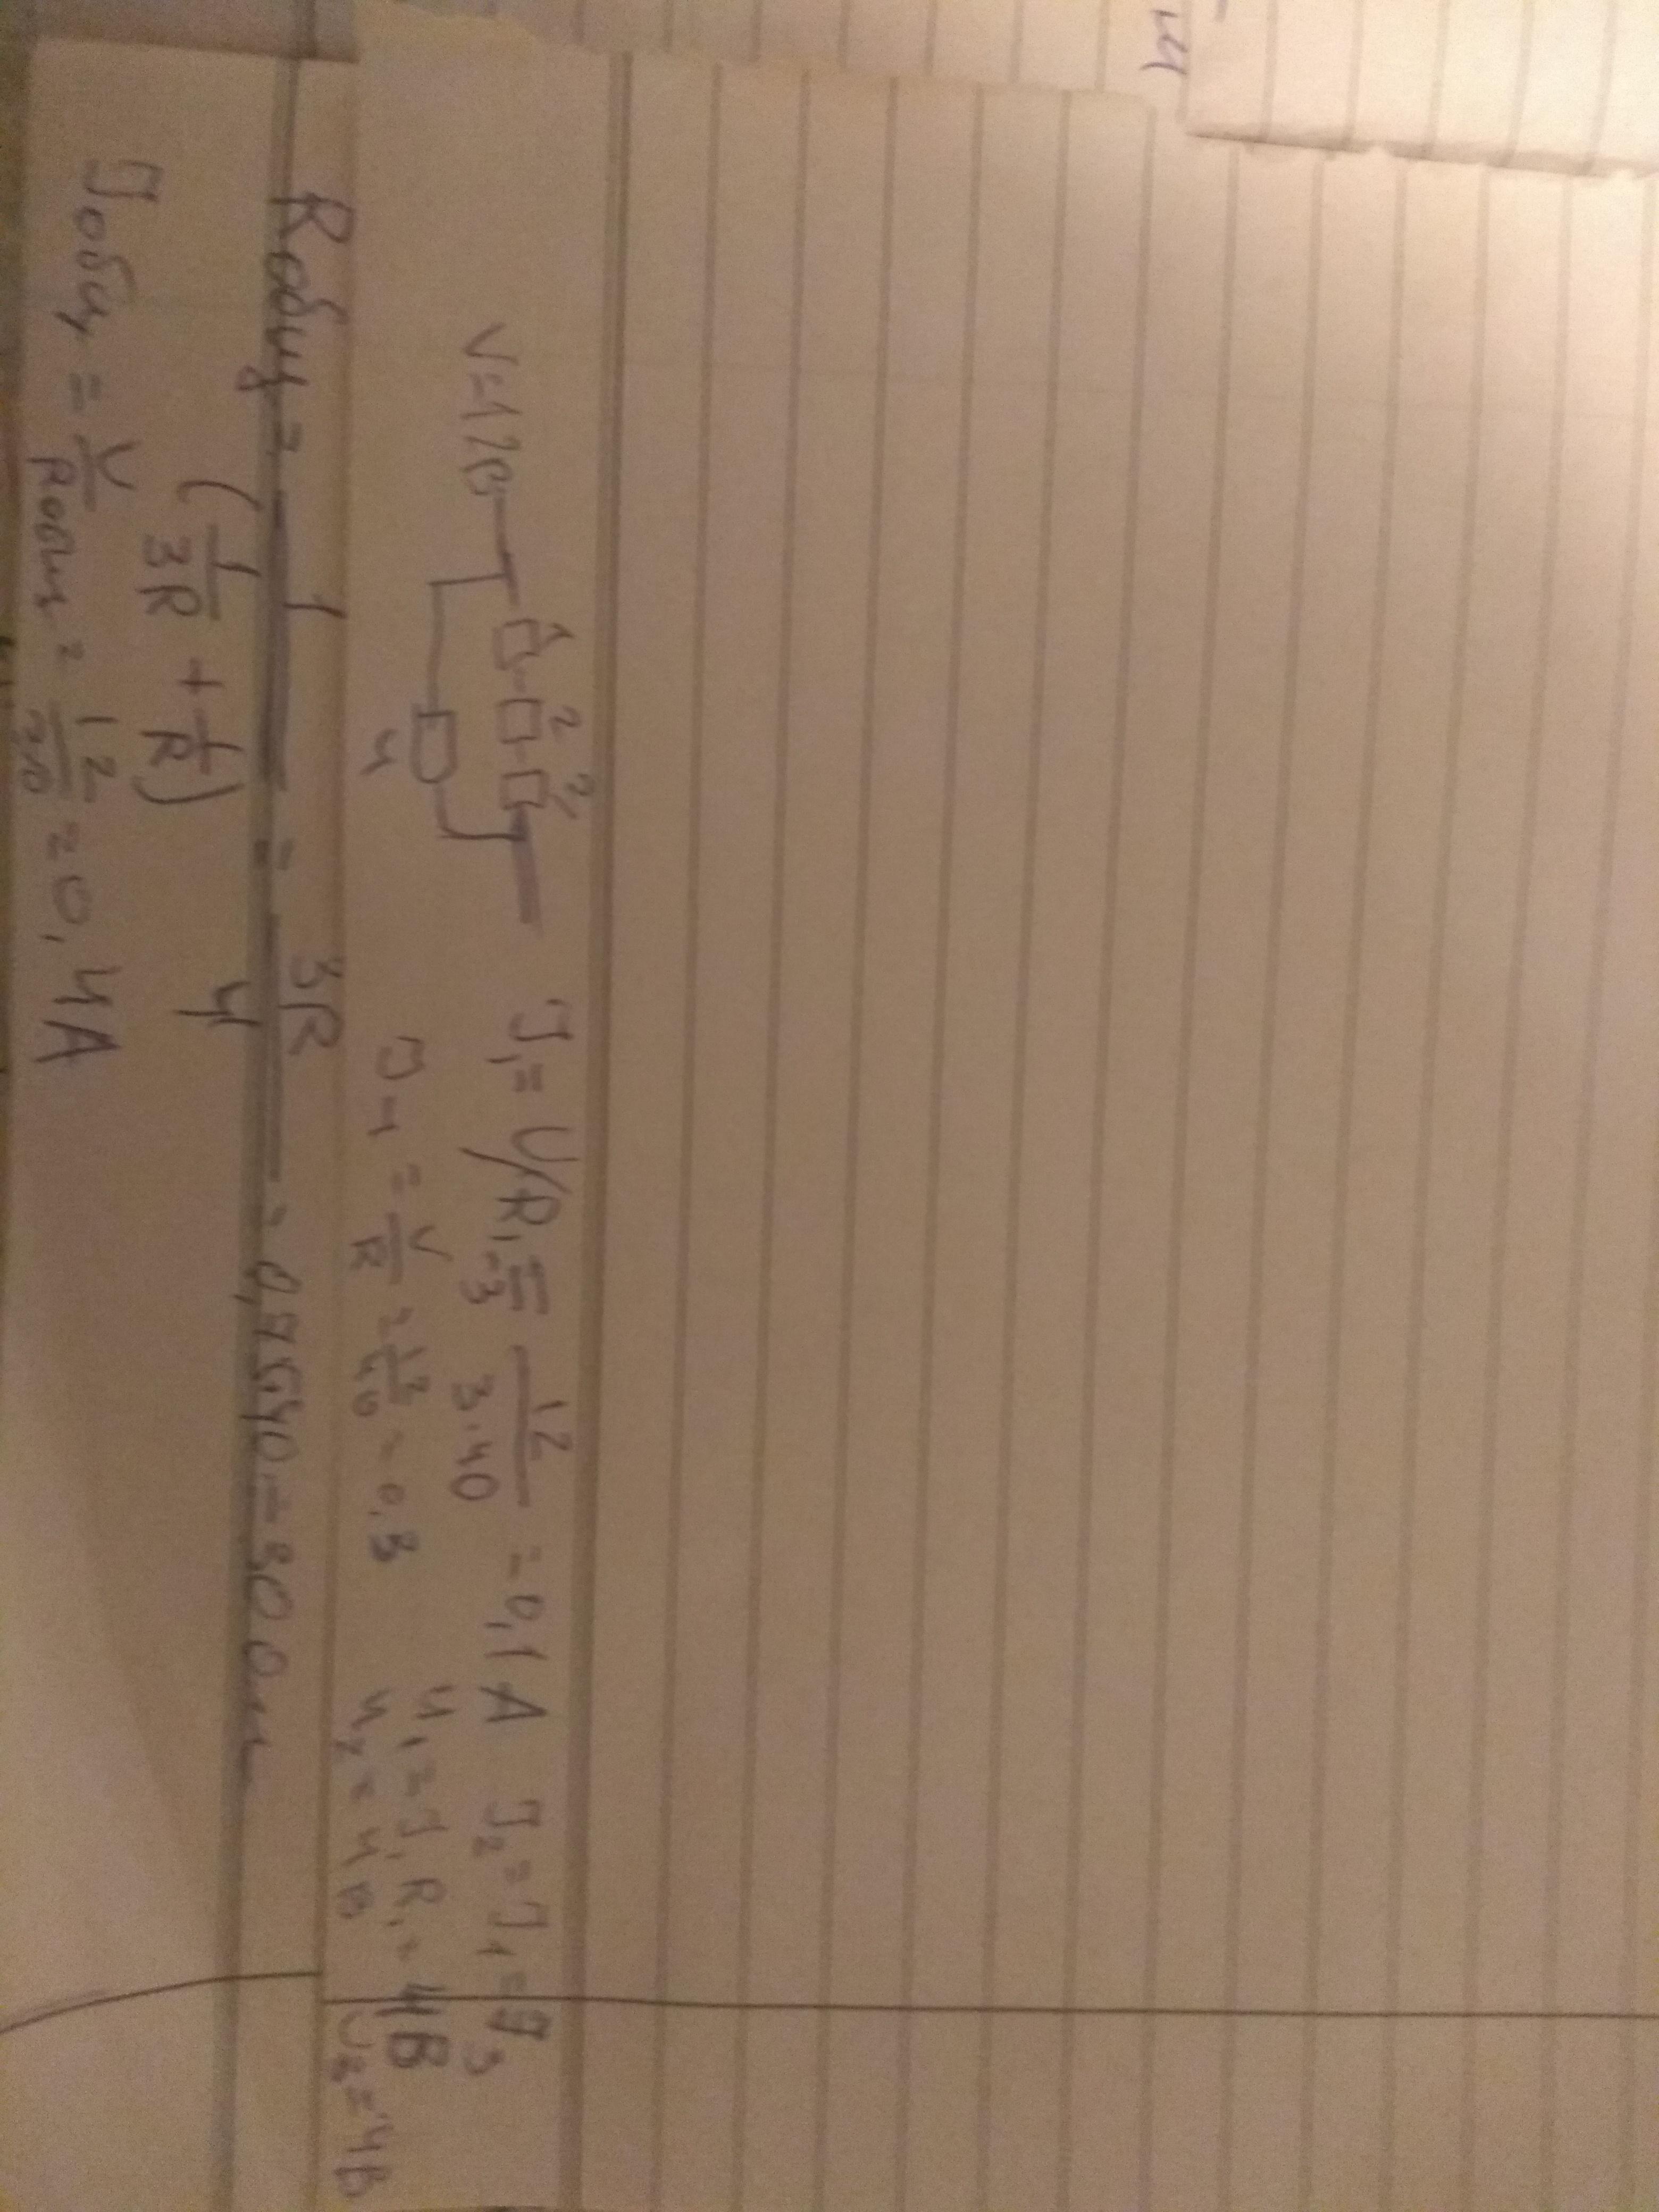 1 2 3
V=12В
4
J₁ = U/R₁₋₃ = 12/(3·40) = 0,1 A J₂ = J₁ = J₃
J₄ = V/R = 12/40 = 0,3
U₁ = J₁R₁ = 4В
U₂ = 4В U₃ = 4В
Rобщ = 1/(1/3R + 1/R) = 3R/4 = 0,75·40 = 30 Ом
Jобщ = V/Rобщ = 12/30 = 0,4A